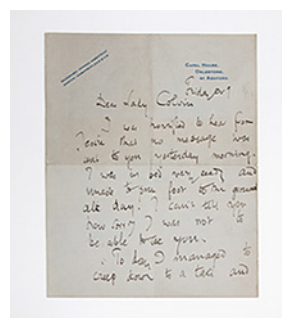 CAPEL HOUSE,
ORLESTONE,
Nr ASHFORD.
Friday
Dear Lady Colvin
I was horrified to hear from
that no message was
sent to you yesterday morning.
I was in bed very seedy and
unable to put foot to the ground
all day. I can't tell you
how sorry I was not to
be able to see you.
To day I managed to
creep down to a taxi and